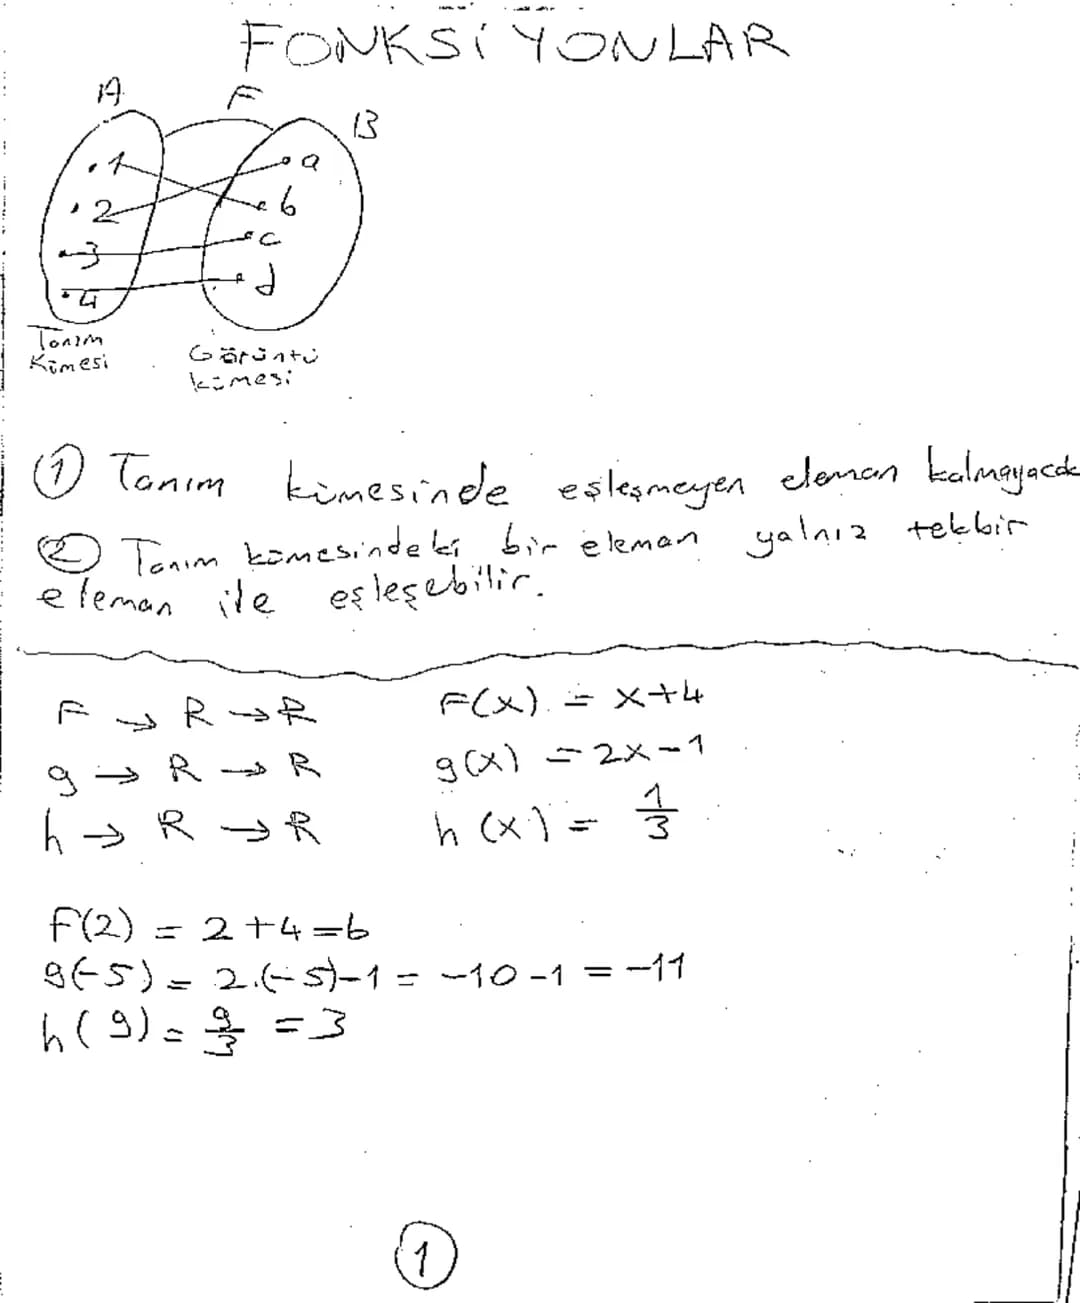 FONKSİYONLAR
A F B
.1 .a
.2 .b
.3 .c
.4 .d
Tanım
Kümesi
Görüntü
kümesi
① Tanım kümesinde eşleşmeyen eleman kalmayacak
② Tanım kümesindeki bir eleman yalnız tekbir
eleman ile eşleşebilir.
F → R → R F(x) = x+4
g → R → R g(x) = 2x-1
h → R → R h(x) = 1/3
F(2) = 2+4=6
g(-5) = 2.(-5)-1 = -10-1 = -11
h(9) = 9/3 = 3
①